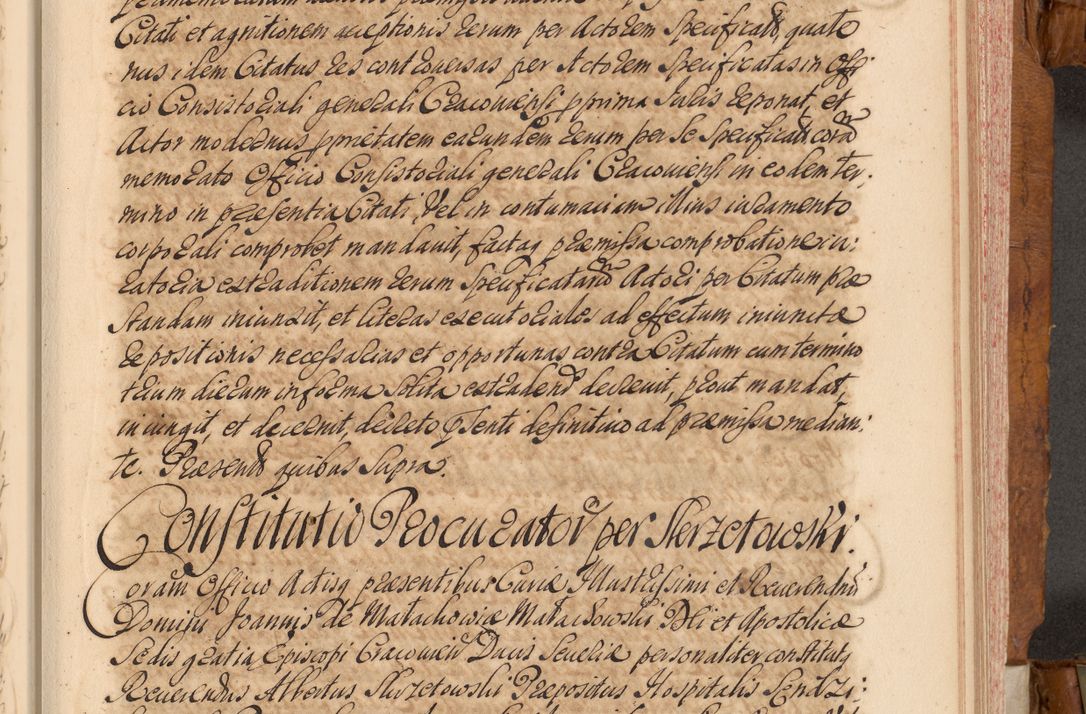 Citati et agnitionem acceptionis rerum per Actorem Specificatar, quate
nus idem Citatus res controversas per Actorem Specificatas in Offi:
cio Consistoriali generali Cracoviensi pprima Iuris reponat, et
Actor modernus pprietatem earundem rerum per se Specificatar corā
memorato Officio Consistoriali generali Cracoviensi in eodem ter,
mino in præsentia Citati, Vel in contumaciam illius iuramento
corporali comprobet mandavit, factaq præmissa comprobatione iu:
ratoria extraditionem rerum Specificatarum Actori per Citatum præ
standam iniunxit, et literas executoriales ad effectum iniunctæ
repositionis necessarias et opportunas contra Citatum cum termino
trium dierum in forma solita extradend decrevit, prout mandat,
iniungit, et decernit, decreto pnti definitivo ad præmissa median:
te. Præsentib quibus Supra.
Constitutio Procurator per Skrzetowski.
Coram Officio Actisq præsentibus Curiæ Illustrissimi et Reverendissi
Domini Joannis de Małachowice Małachowski Dei et Apostolicæ
Sedis gratia Episcopi Cracovien Ducis Severiæ personaliter constitutq
Reverendus Albertus Skrzetowski Præpositus Hospitalis Sendzi: